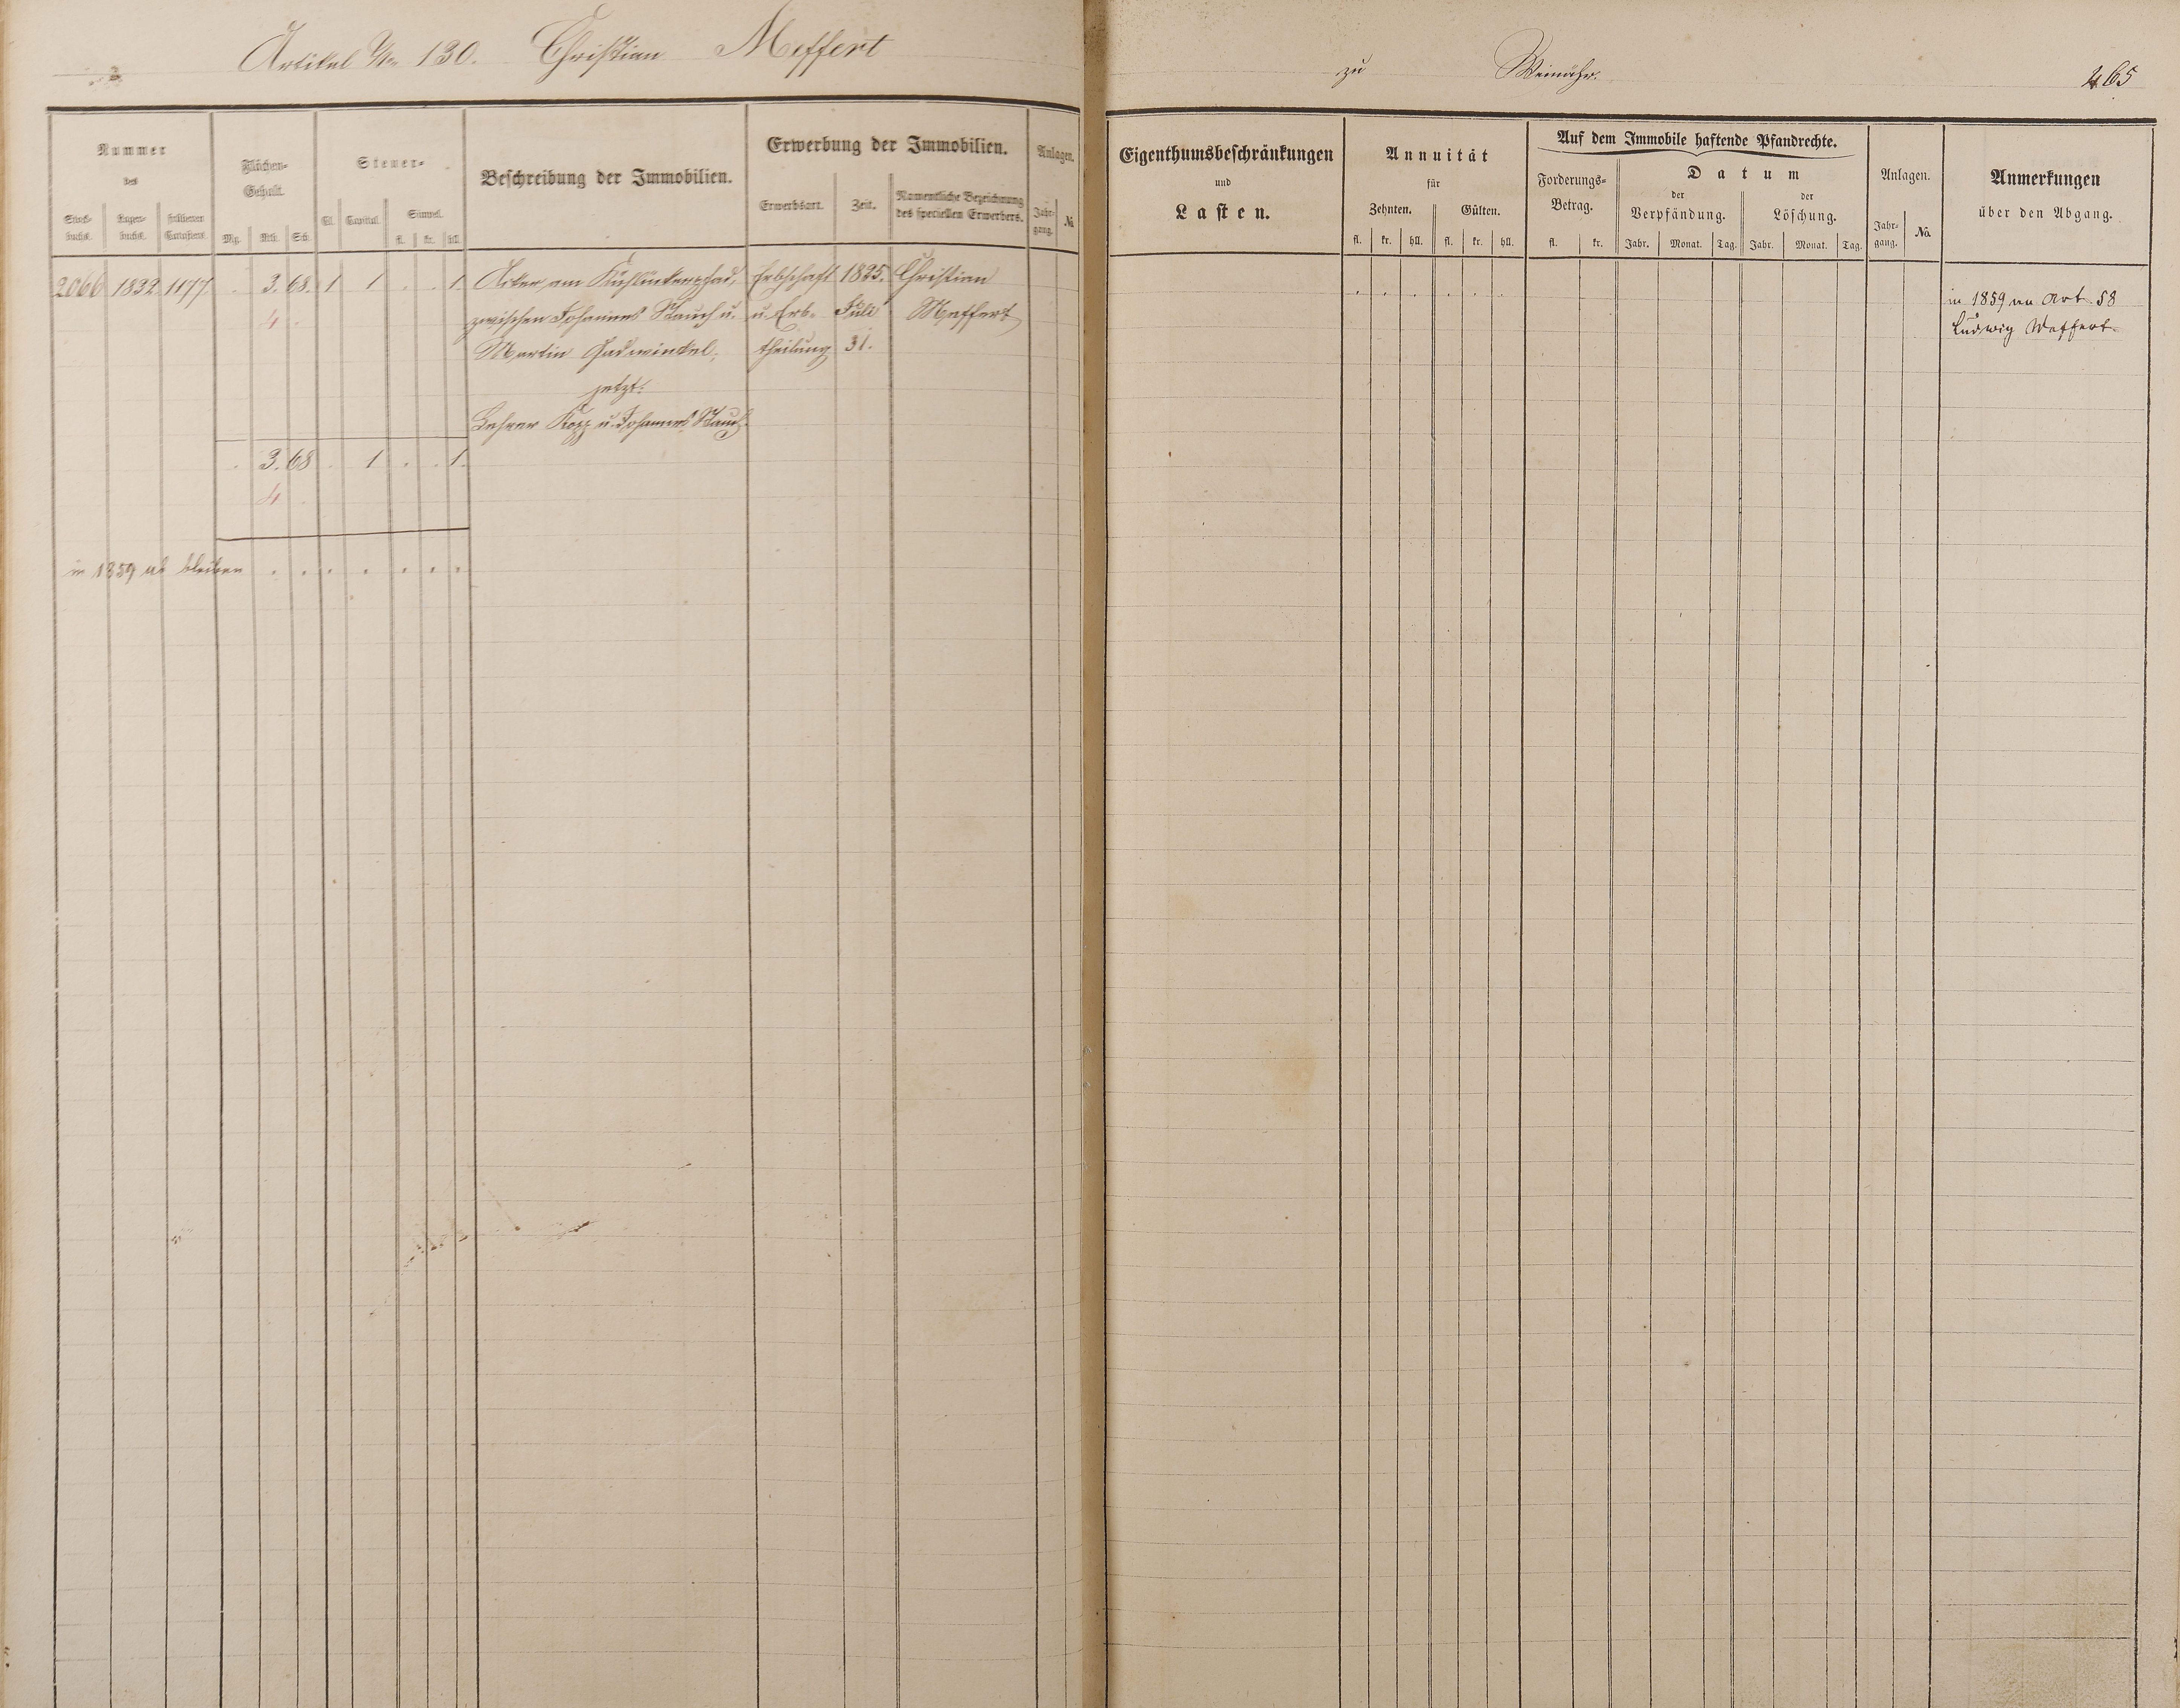 Artikel No 130. Christian Meffert
zu Weinähr. 465
Nummer
des
Stock-
buchs.
Lager-
buchs.
früheren
Catasters.
Flächen-
Gehalt.
Mg. Rth. Sch.
Steuer-
Cl. Capital. Simpel.
fl. kr. hll.
Beschreibung der Immobilien.
Erwerbung der Immobilien.
Erwerbsart. Zeit.
Namentliche Bezeichnung
des speciellen Erwerbers.
Anlagen.
Jahr-
gang. No
Eigenthumsbeschränkungen
und
Lasten.
Annuität
für
Zehnten. Gülten.
fl. kr. hll. fl. kr. hll.
Auf dem Immobile haftende Pfandrechte.
Forderungs-
Betrag.
fl. kr.
Datum
der
Verpfändung.
der
Löschung.
Jahr. Monat. Tag. Jahr. Monat. Tag.
Anlagen.
Jahr-
gang. No.
Anmerkungen
über den Abgang.
2066 1832 1177 . 3. 68. 1 1 . . 1.
4 .
Acker am
zwischen Johannes Stauch u.
Martin Hadwinkel,
jetzt:
Lehrer Kopp u. Johannes Stauch
Erbschaft
u. Erb-
theilung
1825.
Juli
31.
Christian
Meffert
in 1859 an Art. 58
Ludwig Meffert.
. 3. 68 . 1 . . 1.
4 .
in 1859 ab bleiben . . . . . . .